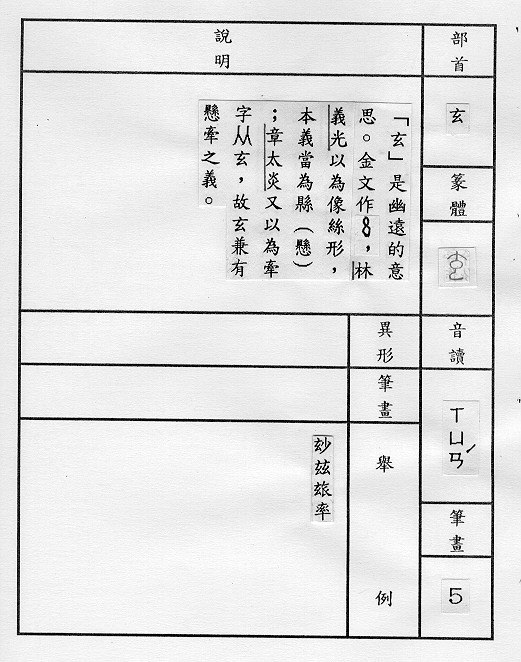 部首
玄
篆體
音讀
ㄒㄩㄢˊ
筆畫
5
說明
「玄」是幽遠的意
思。金文作8，林
義光以為像絲形，
本義當為縣（懸）
；章太炎又以為牽
字从玄，故玄兼有
懸牽之義。
異形
筆畫
舉例
玅玆玈率